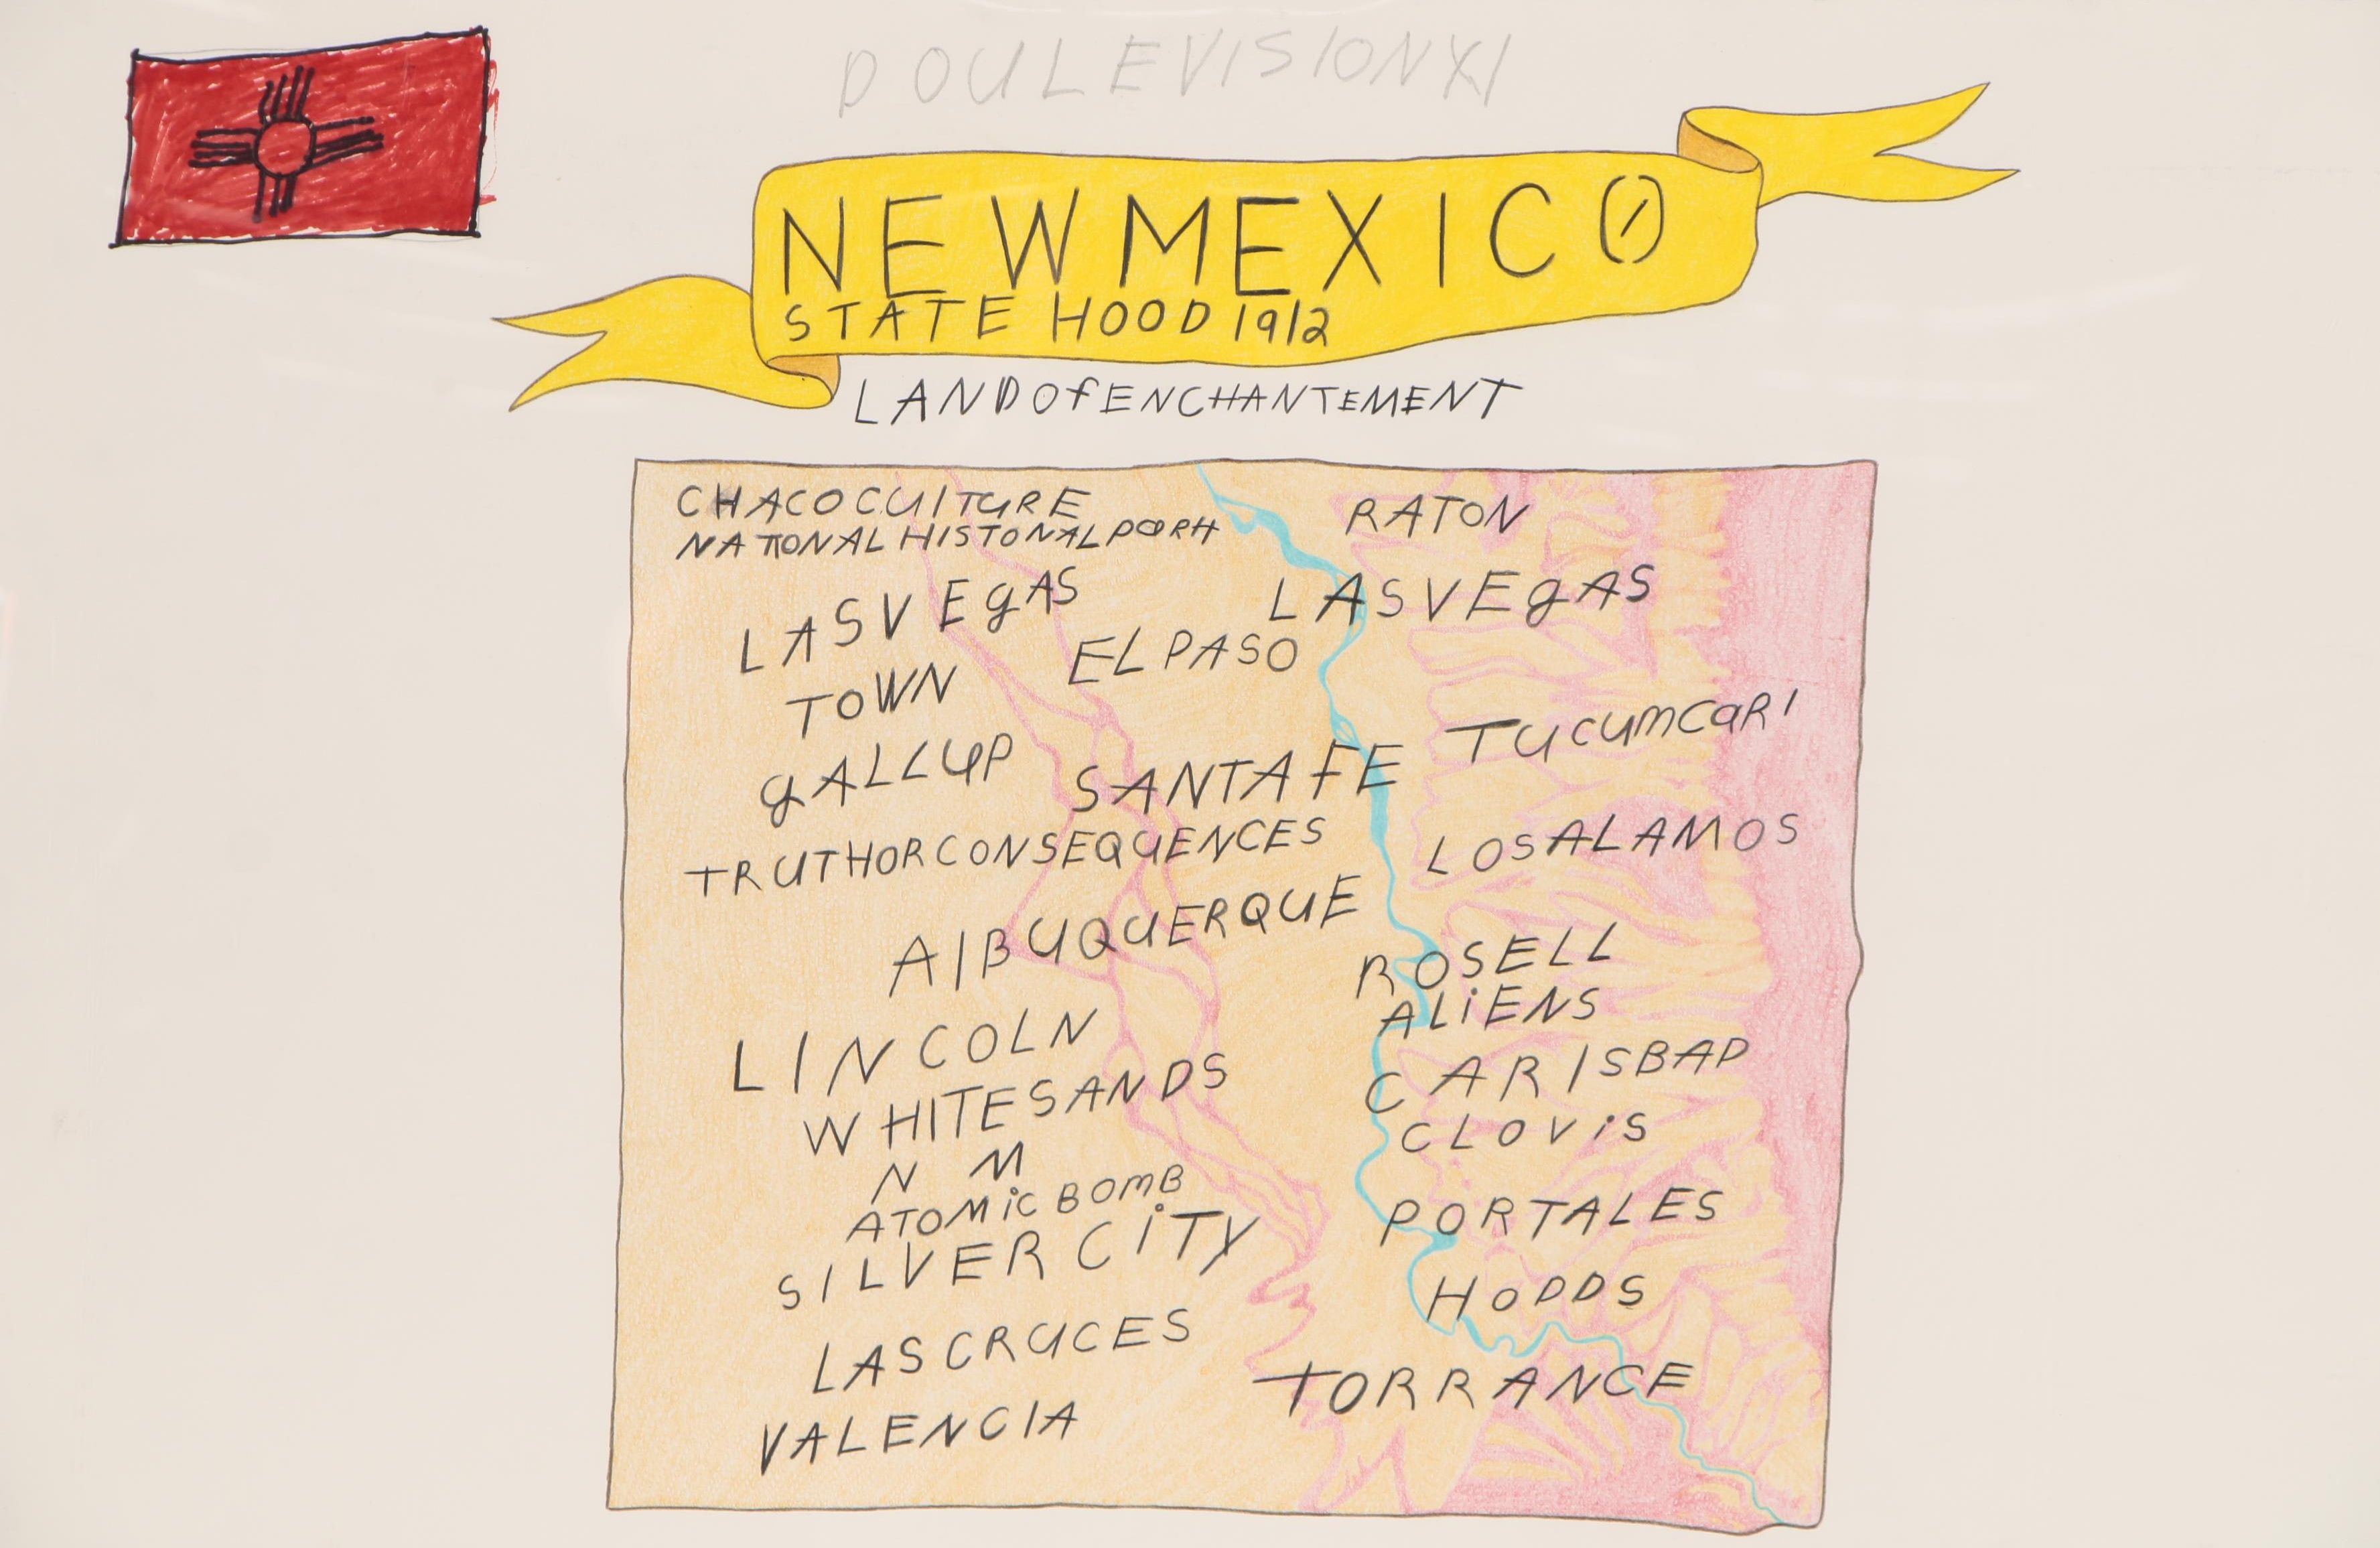 DOULEVISIONXI
NEWMEXICO
STATE HOOD 1912
LANDOfENCHANTEMENT
CHACOCUITURE
NATIONAL HISTONALPORH
LASVEgAS
TOWN
gALLUP
TRUTHORCONSEQUENCES
AlBUQUERQUE
LINCOLN
WHITESANDS
N M
ATOMiC BOmB
SILVER CiTY
LASCRUCES
VALENCIA
ELPASO
SANTAFE
RATON
LASVEgAS
TucumcaRI
LOSALAMOS
ROSELL
ALiENS
CARlSBAD
CLOViS
PORTALES
HoDDS
TORRANCE